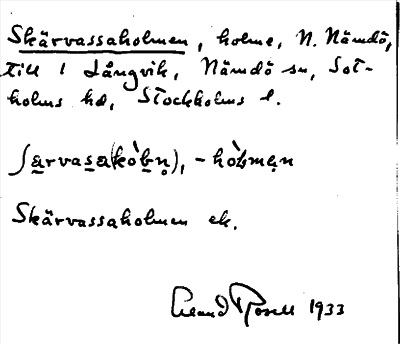 Skärvassaholmen, holme, N. Nämdö,
till 1 Långvik, Nämdö sn, Sot-
holms hd, Stockholms l.
ʃa̱rvasa̱(kòḻn̥), -hòḻmạn
Skärvassaholmen ek.
Rosell 1933